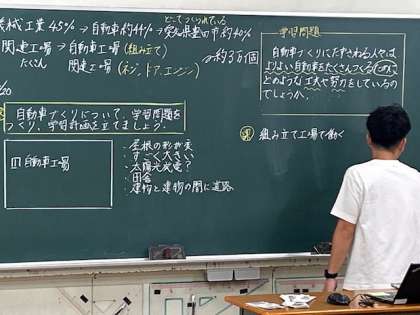 械工業45%→自動車約44%→愛知県豊田市約40%
どこでつくられている
関連工場→自動車工場(組み立て)
約3万個
たくさん 関連工場(ネジ、ドア、エンジン)
/20
自動車づくりについて、学習問題を
つくり、学習計画を立てましょう。
自動車工場
・屋根の形が変
・すごく大きい
・太陽光発電?
・田舎
・建物と建物の間に道路
学習問題
自動車づくりにたずさわる人々は、
よりよい自動車をたくさんつくるために、
どのような工夫や努力をしているの
でしょうか。
組み立て工場で働く